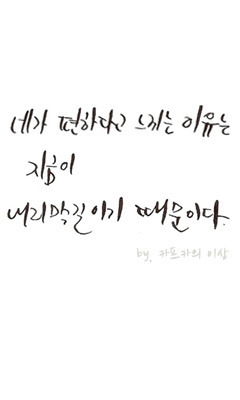 네가 편하다고 느끼는 이유는
지금이
내리막길이기 때문이다.
by. 카프카의 이상